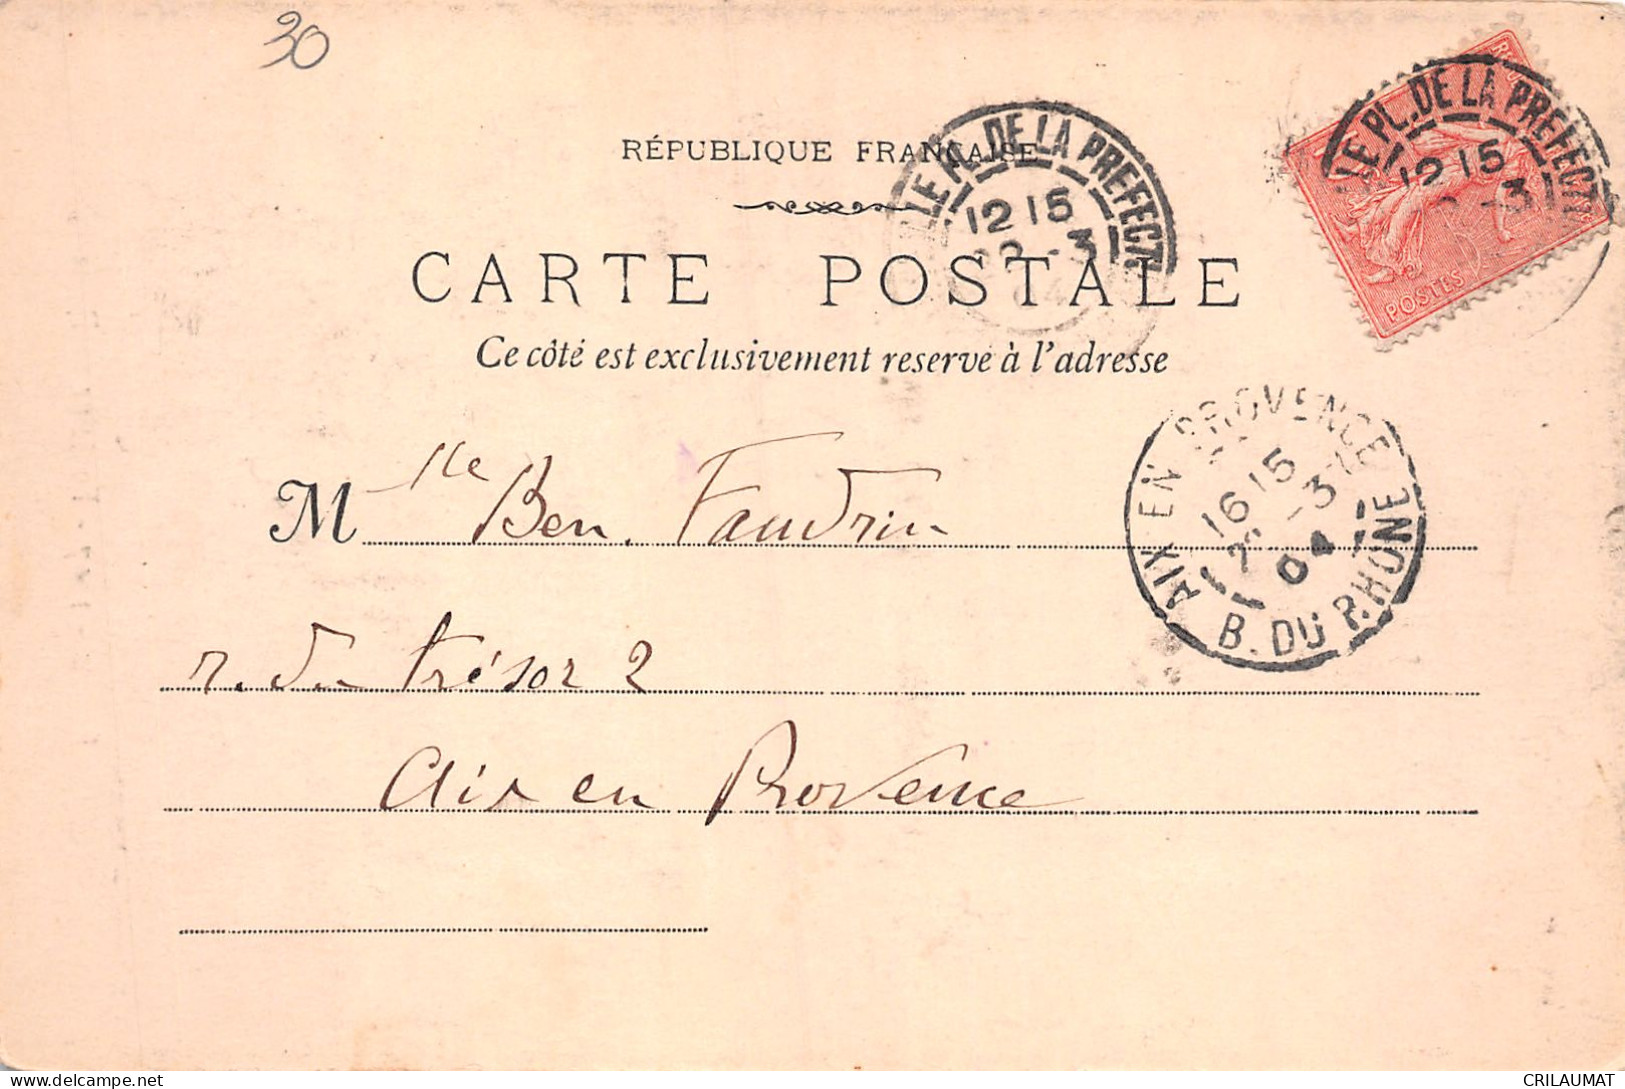 30
RÉPUBLIQUE FRANÇAISE
LLE PL. DE LA PREFECT
12 15
-3
04
LLE PL. DE LA PREFECT
12 15
-3
POSTES
CARTE POSTALE
Ce côté est exclusivement reservé à l'adresse
AIX EN PROVENCE
16 15
2 -3
04
B. DU RHONE
Mlle Ben. Faudrin
r. du trésor 2
Aix en Provence
CRILAUMAT